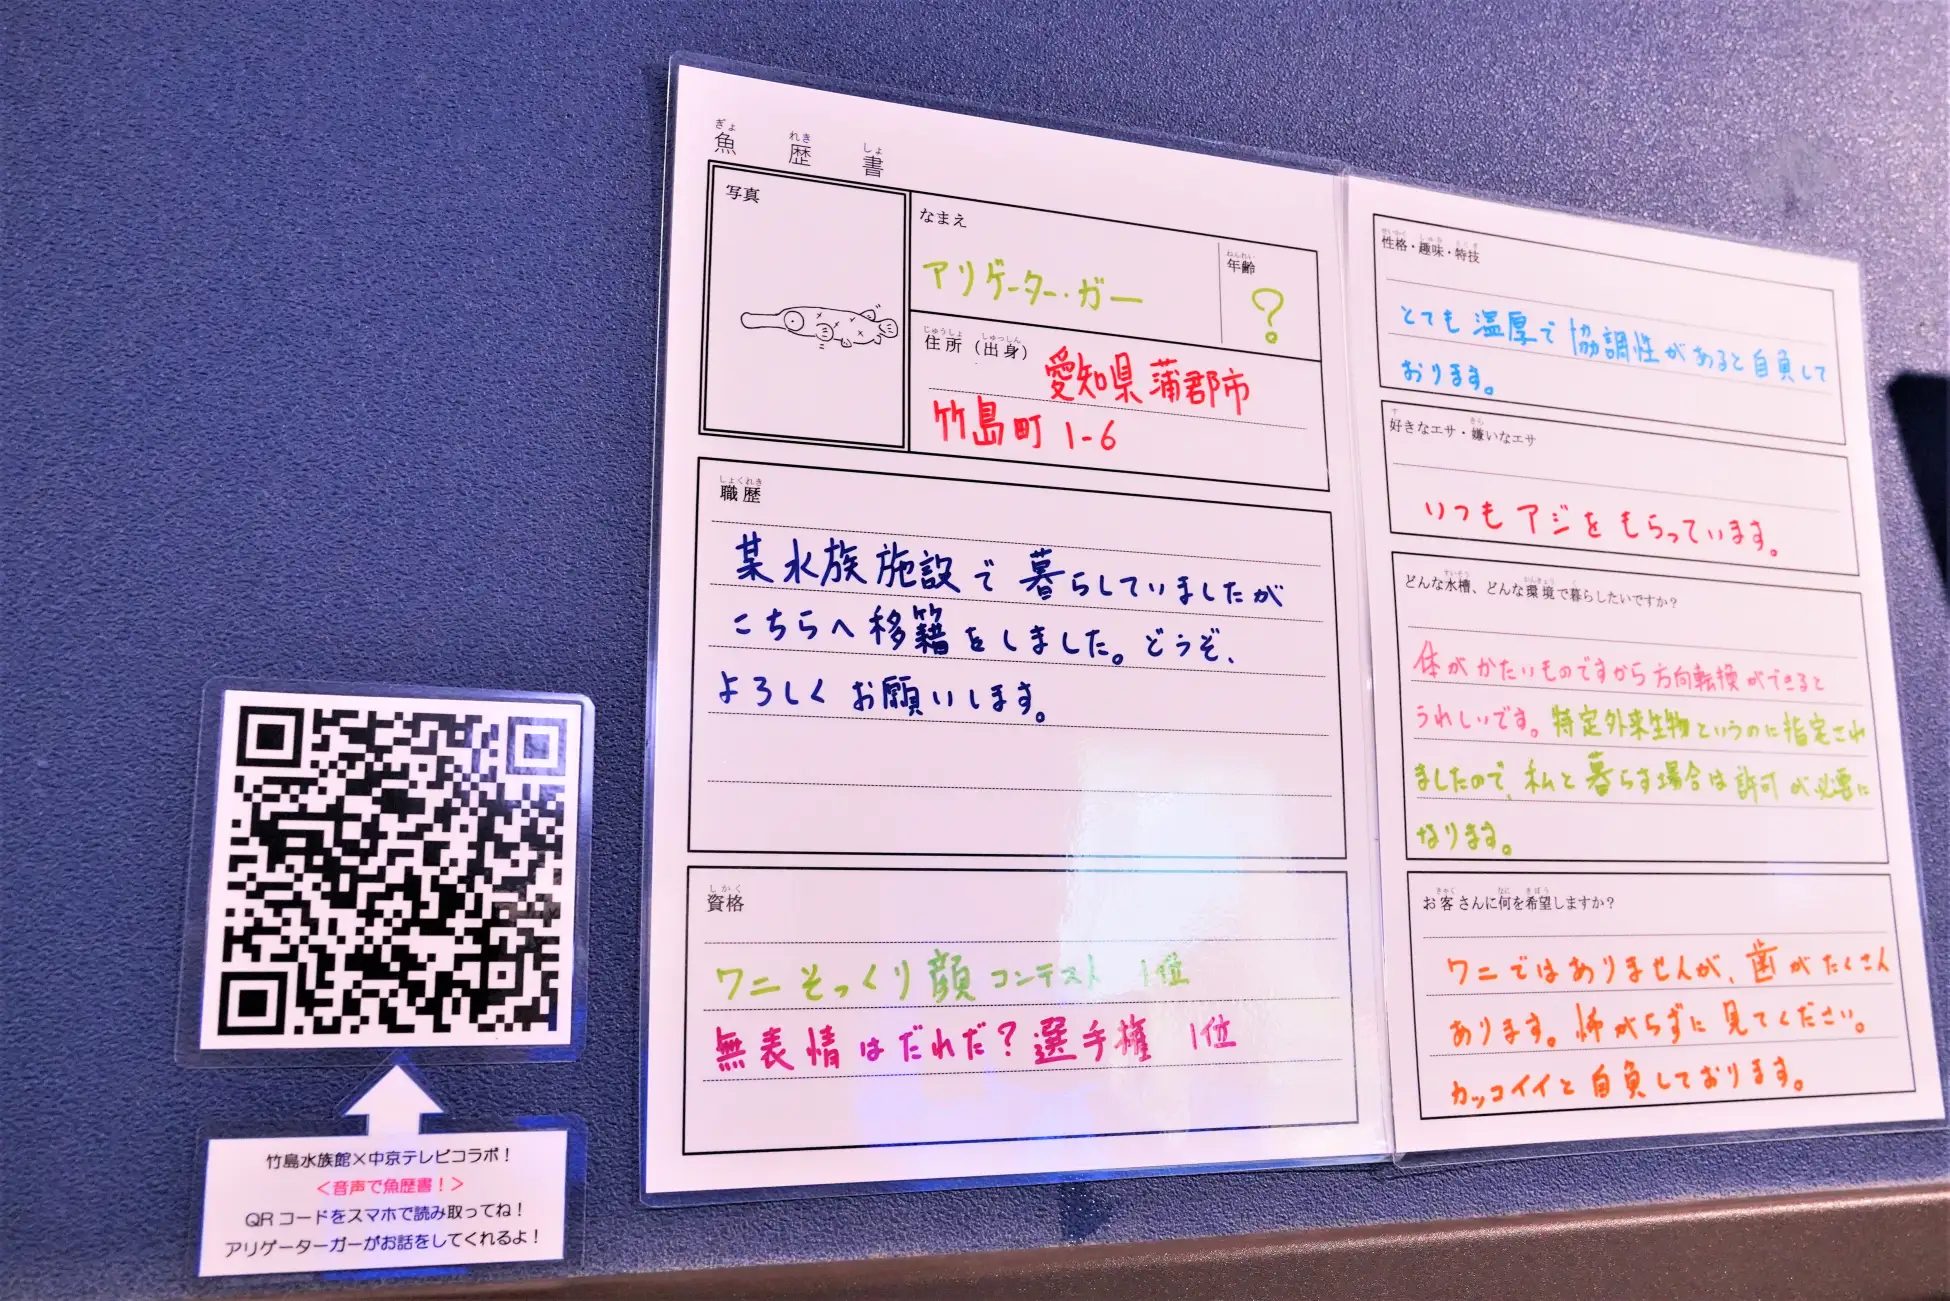 魚歴書
写真
なまえ
アリゲーター・ガー
年齢
?
住所（出身）
愛知県蒲郡市
竹島町1-6
職歴
某水族施設で暮らしていましたが
こちらへ移籍をしました。どうぞ、
よろしくお願いします。
資格
ワニそっくり顔コンテスト 1位
無表情はだれだ?選手権 1位
性格・趣味・特技
とても温厚で協調性があると自負して
おります。
好きなエサ・嫌いなエサ
いつもアジをもらっています。
どんな水槽、どんな環境で暮らしたいですか?
体がかたいものですから方向転換ができると
うれしいです。特定外来生物というのに指定され
ましたので、私と暮らす場合は許可が必要に
なります。
お客さんに何を希望しますか?
ワニではありませんが、歯がたくさん
あります。怖がらずに見てください。
カッコイイと自負しております。
竹島水族館×中京テレビコラボ!
<音声で魚歴書!>
QRコードをスマホで読み取ってね!
アリゲーターガーがお話をしてくれるよ!